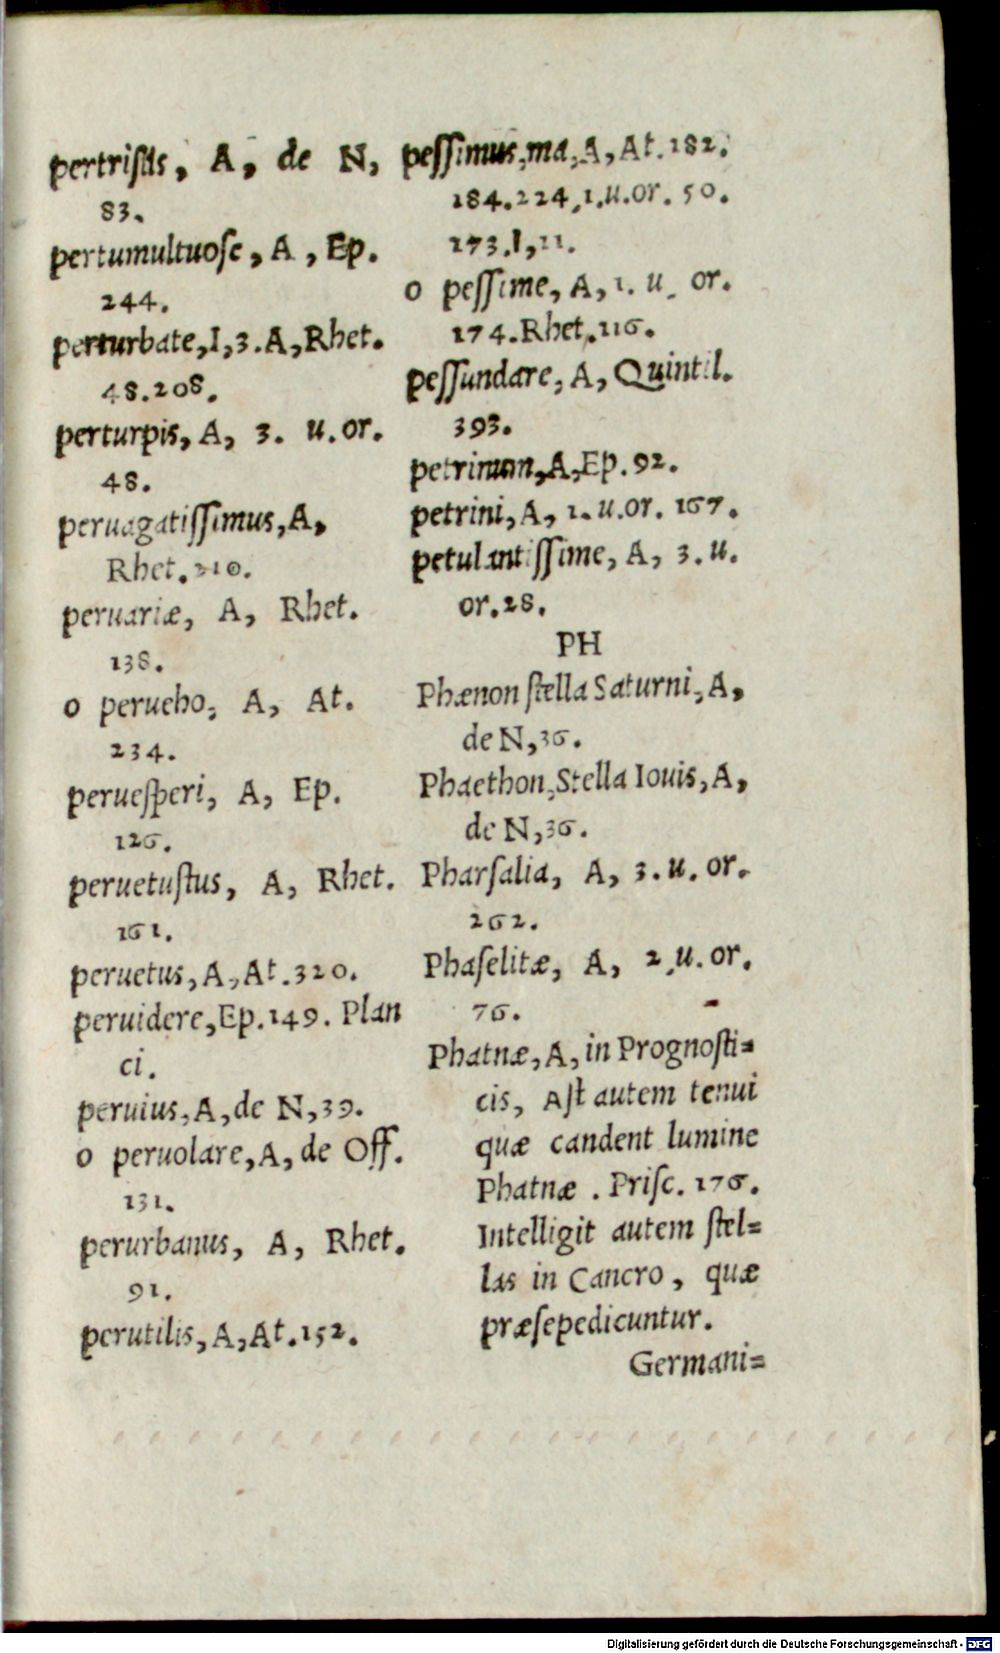 pertristis, A, de N,
83.
pertumultuose, A, Ep.
244.
perturbate, I, 3. A, Rhet.
48.208.
perturpis, A, 3. u. or.
48.
peruagatissimus, A,
Rhet. 210.
peruariæ, A, Rhet.
138.
o perueho, A, At.
234.
peruesperi, A, Ep.
126.
peruetustus, A, Rhet.
161.
peruetus, A, At. 320.
peruidere, Ep. 149. Plan
ci.
peruius, A, de N, 39.
o peruolare, A, de Off.
131.
perurbanus, A, Rhet.
91.
perutilis, A, At. 152.
pessimus, ma, A, At. 182.
184. 224, 1. u. or. 50.
173. I, 11.
o pessime, A, 1. u. or.
174. Rhet. 116.
pessundare, A, Quintil.
393.
petrinum, A, Ep. 92.
petrini, A, 1. u. or. 167.
petulantissime, A, 3. u.
or. 28.
PH
Phænon stella Saturni, A,
de N, 36.
Phaethon, Stella Iouis, A,
de N, 36.
Pharsalia, A, 3. u. or.
262.
Phaselitæ, A, 2. u. or.
76.
Phatnæ, A, in Prognosti=
cis, Ast autem tenui
quæ candent lumine
Phatnæ. Prisc. 176.
Intelligit autem stel=
las in Cancro, quæ
præsepe dicuntur.
Germani=
Digitalisierung gefördert durch die Deutsche Forschungsgemeinschaft - DFG